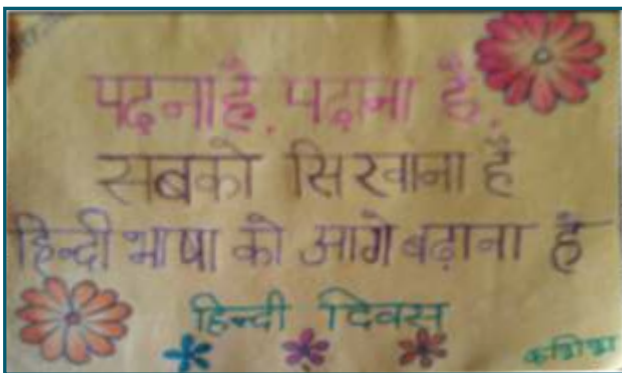 पढ़ना है, पढ़ाना है,
सबको सिखाना है
हिन्दी भाषा को आगे बढ़ाना है
हिन्दी दिवस